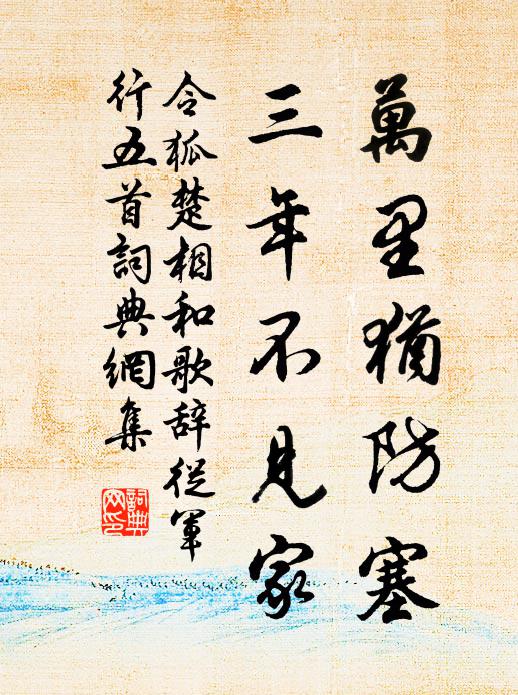 萬里猶防塞
三年不見家
令狐楚相和歌辞從軍
行五首詞典網集
詞典
网印